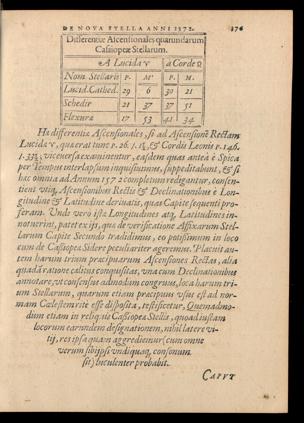 DE NOVA STELLA ANNI 1572. 176
Differentiæ Ascensionales quarundarum
Cassiopeæ Stellarum.
A Lucida ♈ à Corde ♌
Nom. Stellarū P. M. P. M.
Lucid. Cathed. 29 6 30 21
Schedir 21 37 37 51
Flexura 17 53 41 34
Hæ differentiæ Ascensionales, si ad Ascensionē Rectam
Lucidæ ♈, quæ erat tunc p. 26. & Cordis Leonis p. 146.
viceversa examinentur, easdem quas anteà è Spica
per Tempus interlapsum inquisivimus, suppeditabunt, & si
hæc omnia ad Annum 1572 completum redegantur, consen-
tient Ascensionibus Rectis & Declinationibus è Lon-
gitudine & Latitudine derivatis, quas Capite sequenti pro-
feram. Unde vero istæ Longitudines atq; Latitudines in-
notuerint, patet ex ijs, quæ de verificatione Affixarum Stel-
larum Capite Secundo tradidimus, eo potissimum in loco
cum de Cassiopeæ Sidere peculiariter ageremus. Placuit au-
tem harum trium præcipuarum Ascensiones Rectas, alia
quadā ratione cælitus conquisitas, unà cum Declinationibus
annotare, ut consensus admodum congruus, loca harum tri-
um Stellarum, quarum etiam præcipuus usus est ad nor-
mam Cælestem ritè esse disposita, testificetur. Quemadmo-
dum etiam in reliquis Cassiopeæ Stellis, quoad iustam
locorum earundem designationem, nihil latere vi-
tij, res ipsa quam aggredienur (cum omne
verum sibi ipsi undiquaq; consonum
sit) luculenter probabit.
CAPUT